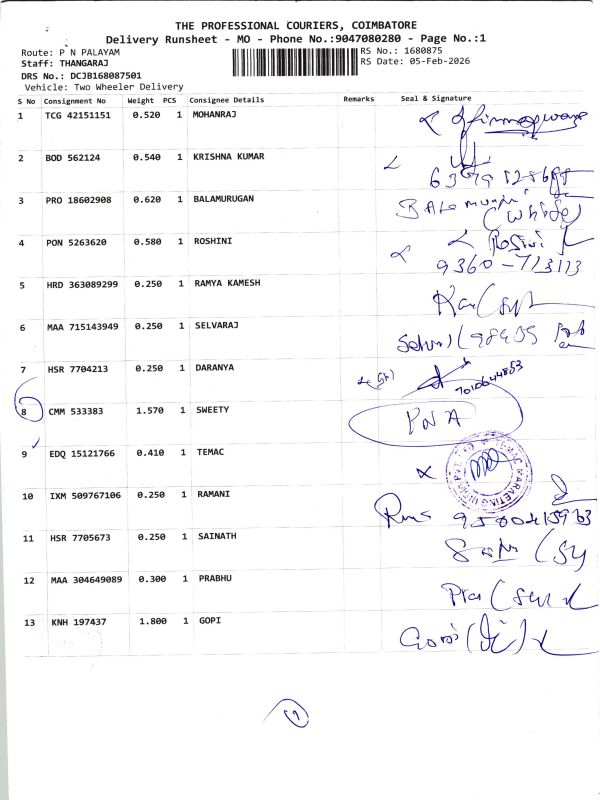 THE PROFESSIONAL COURIERS, COIMBATORE
Delivery Runsheet - MO - Phone No.:9047080280 - Page No.:1
Route: P N PALAYAM
RS No.: 1680875
Staff: THANGARAJ
RS Date: 05-Feb-2026
DRS No.: DCJB168087501
Vehicle: Two Wheeler Delivery
S No Consignment No Weight PCS Consignee Details Remarks Seal & Signature
1 TCG 42151151 0.520 1 MOHANRAJ
2 BOD 562124 0.540 1 KRISHNA KUMAR
3 PRO 18602908 0.620 1 BALAMURUGAN
4 PON 5263620 0.580 1 ROSHINI
9360-713113
5 HRD 363089299 0.250 1 RAMYA KAMESH
6 MAA 715143949 0.250 1 SELVARAJ
7 HSR 7704213 0.250 1 DARANYA
7010644853
8 CMM 533383 1.570 1 SWEETY PNA
9 EDQ 15121766 0.410 1 TEMAC
10 IXM 509767106 0.250 1 RAMANI
11 HSR 7705673 0.250 1 SAINATH
12 MAA 304649089 0.300 1 PRABHU
13 KNH 197437 1.800 1 GOPI